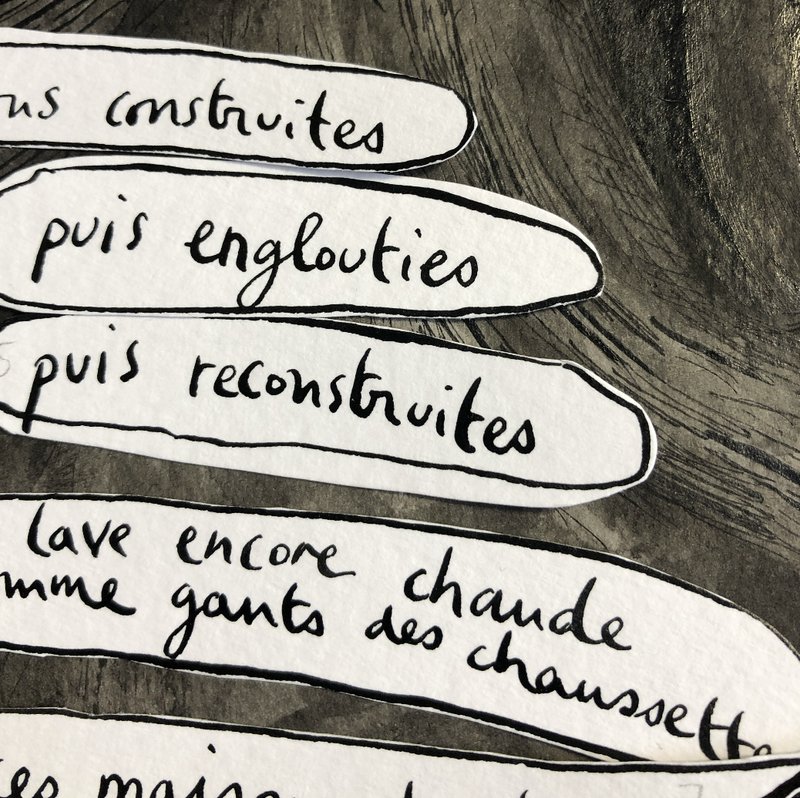 construites
puis englouties
puis reconstruites
lave encore chaude
mme gants des chaussette